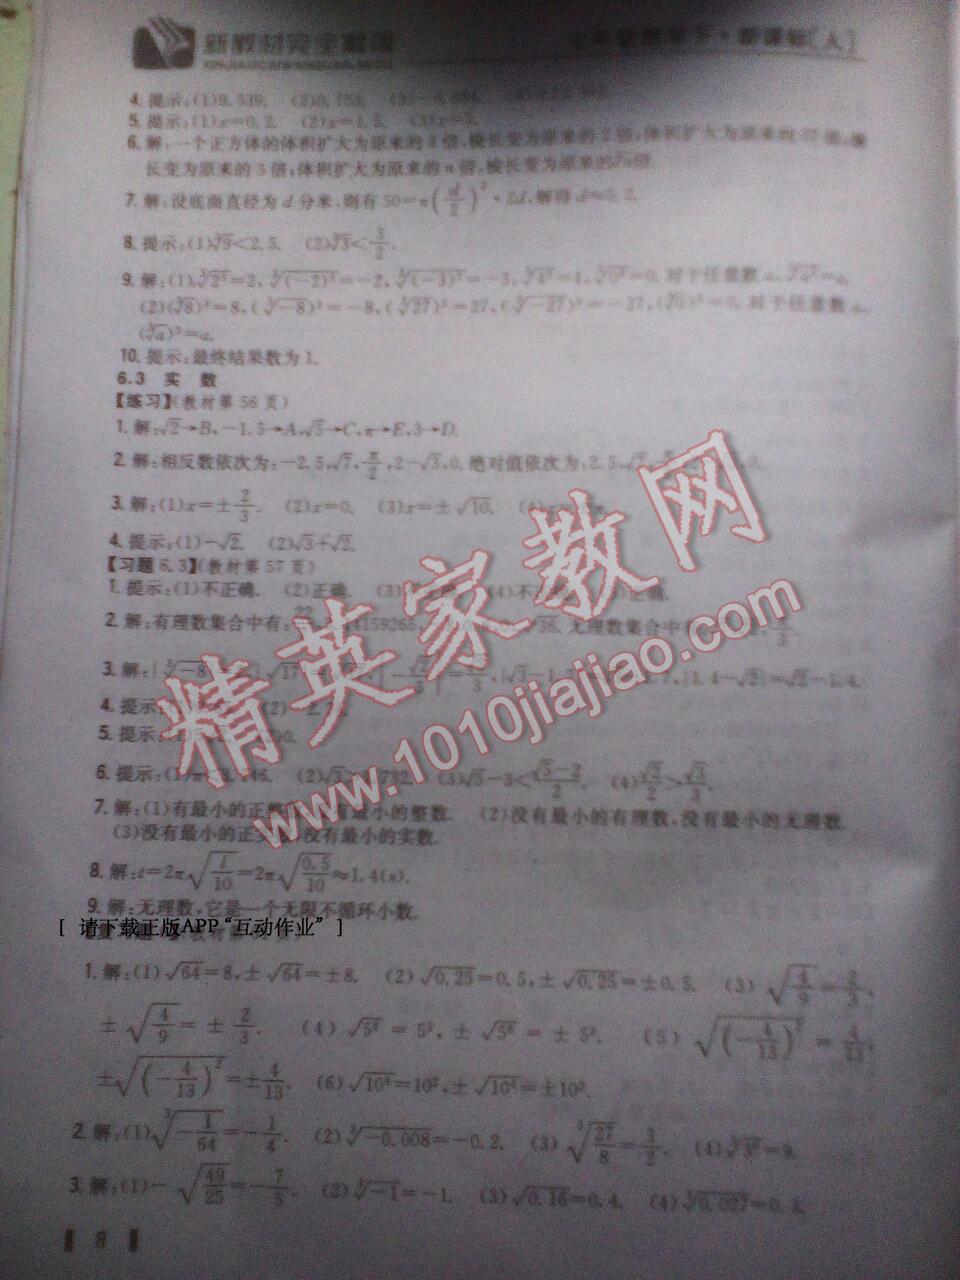 新教材完全解读
4. 提示:(1)9.539. (2)0.753.
5. 提示:(1)x=0.2. (2)x=1.5. (3)x=5.
6. 解:一个正方体的体积扩大为原来的8倍,棱长变为原来的2倍;体积扩大为原来的27倍,棱
长变为原来的3倍;体积扩大为原来的n倍,棱长变为原来的∛n倍.
7. 解:设底面直径为d分米,则有50=π(d/2)²·2d,解得d≈3.2.
8. 提示:(1)∛9<2.5. (2)∛3<3/2.
9. 解:(1)∛2³=2,∛(-2)³=-2,∛(-3)³=-3,∛4³=4,∛0³=0. 对于任意数a,∛a³=a.
(2)(∛8)³=8,(∛-8)³=-8,(∛27)³=27,(∛-27)³=-27,(∛0)³=0. 对于任意数a,
(∛a)³=a.
10. 提示:最终结果数为1.
6.3 实 数
【练习】(教材第56页)
1. 解:√2→B,-1.5→A,√5→C,π→E,3→D.
2. 解:相反数依次为:-2.5,√7,π/2,2-√3,0. 绝对值依次为:2.5,√7,
3. 解:(1)x=±2/3. (2)x=0. (3)x=±√10. (4)
4. 提示:(1)-√2. (2)√3+√2.
【习题6.3】(教材第57页)
1. 提示:(1)不正确. (2)正确. (4)不
2. 解:有理数集合中有:22 14159265, √36. 无理数集合中
3. 解:|∛-8| √17 |-√2/3|=√2/3, |√3-1. 7, |1.4-√2|=√2-1.4.
4. 提示:
5. 提示:
6. 提示:(1)π<3.146. (2)√3>1.732. (3)√5-3<(√5-2)/2. (4)√2/2>√3/3.
7. 解:(1)有最小的正整 有最小的整数. (2)没有最小的有理数,没有最小的无理数.
(3)没有最小的正实 没有最小的实数.
8. 解:t=2π√(l/10)=2π√(0.5/10)≈1.4(s).
9. 解:无理数,它是一个无限不循环小数.
[ 请下载正版APP“互动作业” ]
1. 解:(1)√64=8,±√64=±8. (2)√0.25=0.5,±√0.25=±0.5. (3)√(4/9)=2/3,
±√(4/9)=±2/3. (4)√5⁶=5³,±√5⁶=±5³. (5)√(-4/13)²=4/13,
±√(-4/13)²=±4/13. (6)√10⁴=10²,±√10⁴=±10².
2. 解:(1)∛(-1/64)=-1/4. (2)∛-0.008=-0.2. (3)∛(27/8)=3/2. (4)
3. 解:(1)-√(49/25)=-7/5. (2)∛-1=-1. (3)√0.16=0.4. (4)∛0.027=0.3.
8
精英家教网
www.1010jiajiao.com